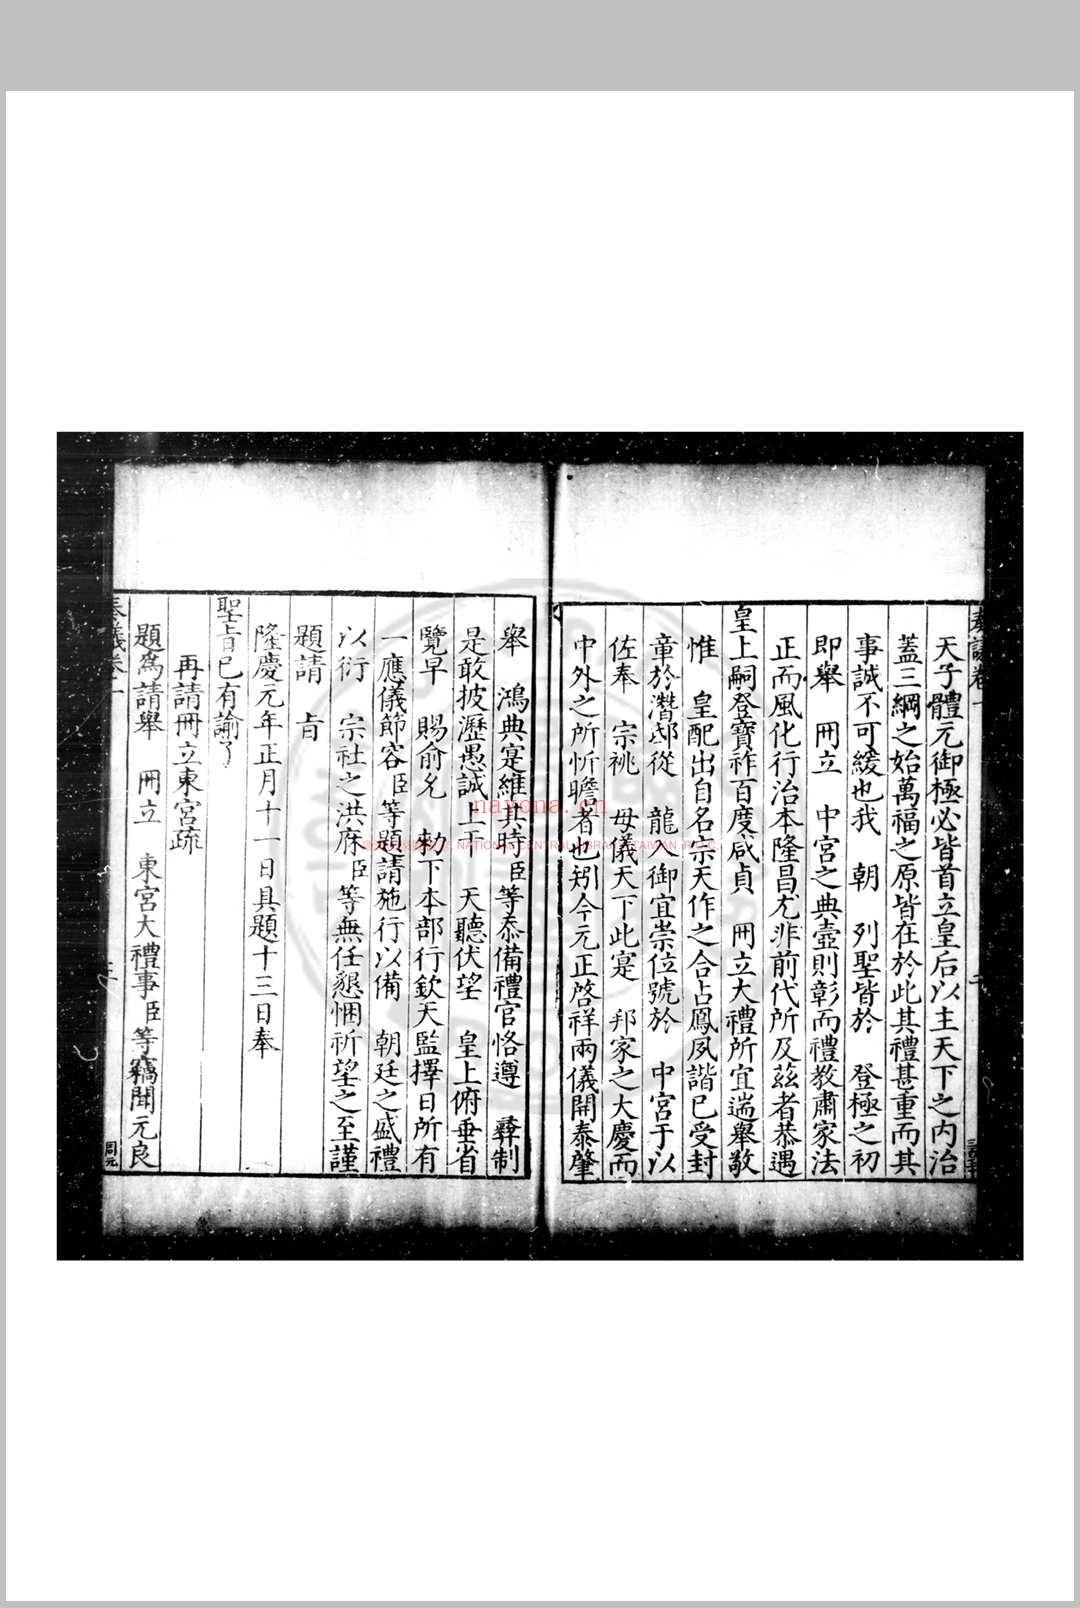 天子體元御極必皆首立皇后以主天下之内治
蓋三綱之始萬福之原皆在於此其禮甚重而其
事誠不可緩也我 朝 列聖皆於 登極之初
即舉 冊立 中宮之典壼則彰而禮教肅家法
正而風化行治本隆昌尤非前代所及茲者恭遇
皇上嗣登寶祚百度咸貞 冊立大禮所宜遄舉敬
惟 皇配出自名宗天作之合占鳳夙諧已受封
章於潛邸從 龍入御宜崇位號於 中宮于以
佐奉 宗祧 母儀天下此寔 邦家之大慶而
中外之所忻瞻者也矧今元正啓祥兩儀開泰肇
舉 鴻典寔維其時臣等忝備禮官恪遵 彝制
是敢披瀝愚誠上干 天聽伏望 皇上俯垂省
覽早 賜俞允 勑下本部行欽天監擇日所有
一應儀節容臣等題請施行以備 朝廷之盛禮
以衍 宗社之洪庥臣等無任懇悃祈望之至謹
題請 旨
隆慶元年正月十一日具題十三日奉
聖旨已有諭了
再請冊立東宮疏
題爲請舉 冊立 東宮大禮事臣等竊聞元良
奏議卷一
周元
nayona.cn
NATIONAL CENTRAL LIBRARY, TAIWAN, R.O.C.